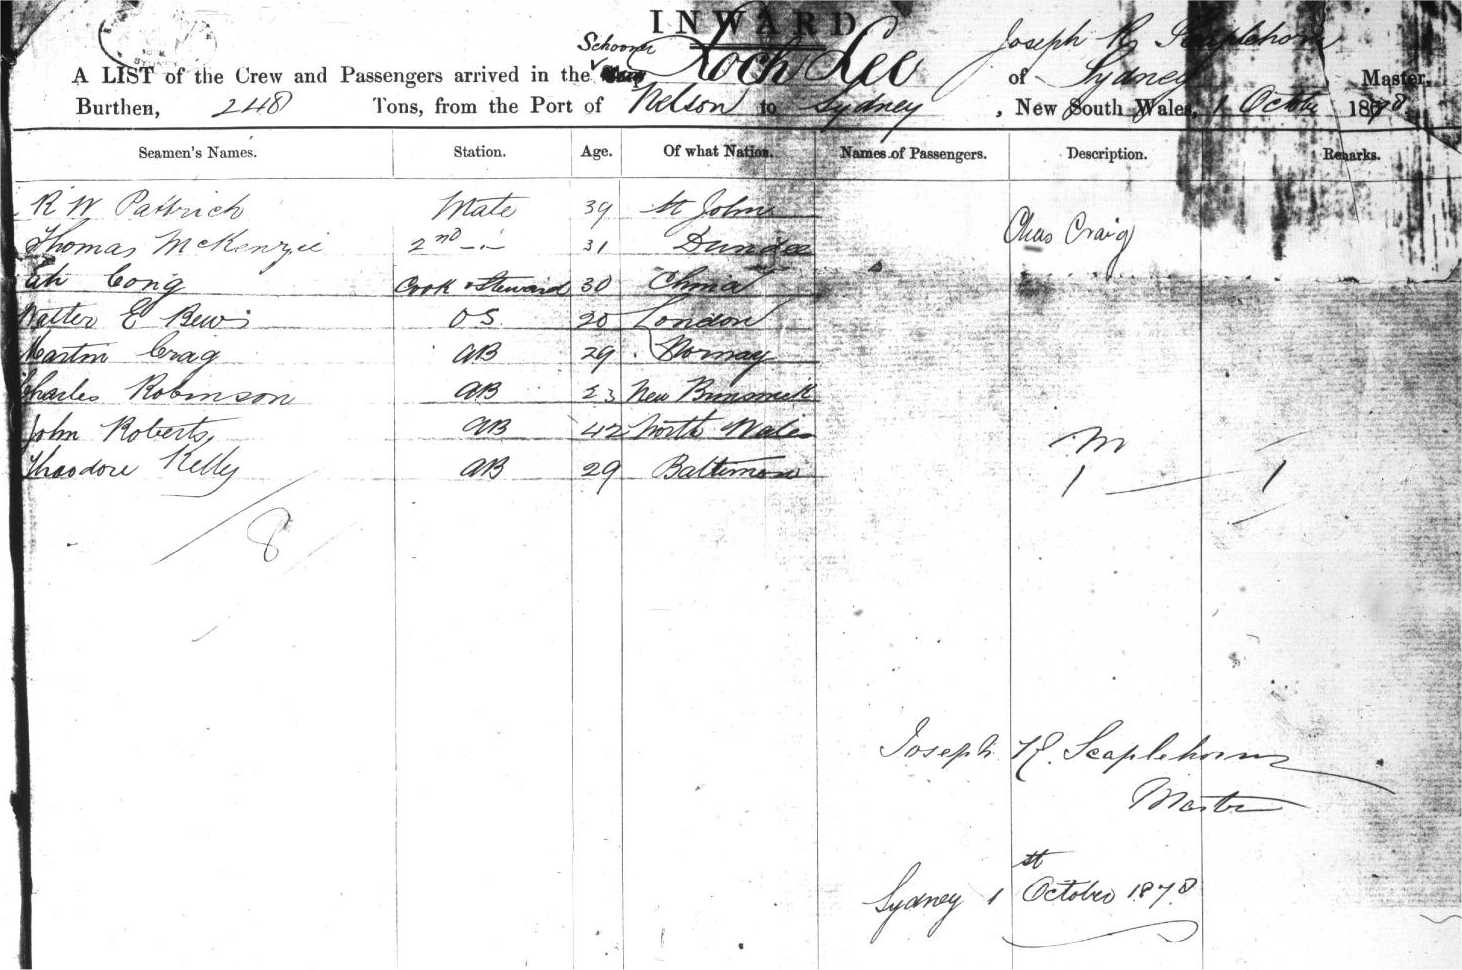 INWARD
Schooner
A LIST of the Crew and Passengers arrived in the Loch Lee Joseph R Scaplehorn of Sydney Master,
Burthen, 248 Tons, from the Port of Nelson to Sydney, New South Wales, 1 Octr 1878
Seamen's Names. Station. Age. Of what Nation. Names of Passengers. Description. Remarks.
R W Pattrich Mate 39 St John
Thomas McKenzie 2nd -"- 31 Dundee
Chas Craig
Ah Cong Cook & Steward 30 China
Walter E Bewis OS 20 London
Martin Crag AB 29 Norway
Charles Robinson AB 23 New Brunswick
John Roberts AB 42 North Wales
M
Theodore Kelly AB 29 Baltimore
1 1
8
Joseph R. Scaplehorn
Master
Sydney 1st October 1878